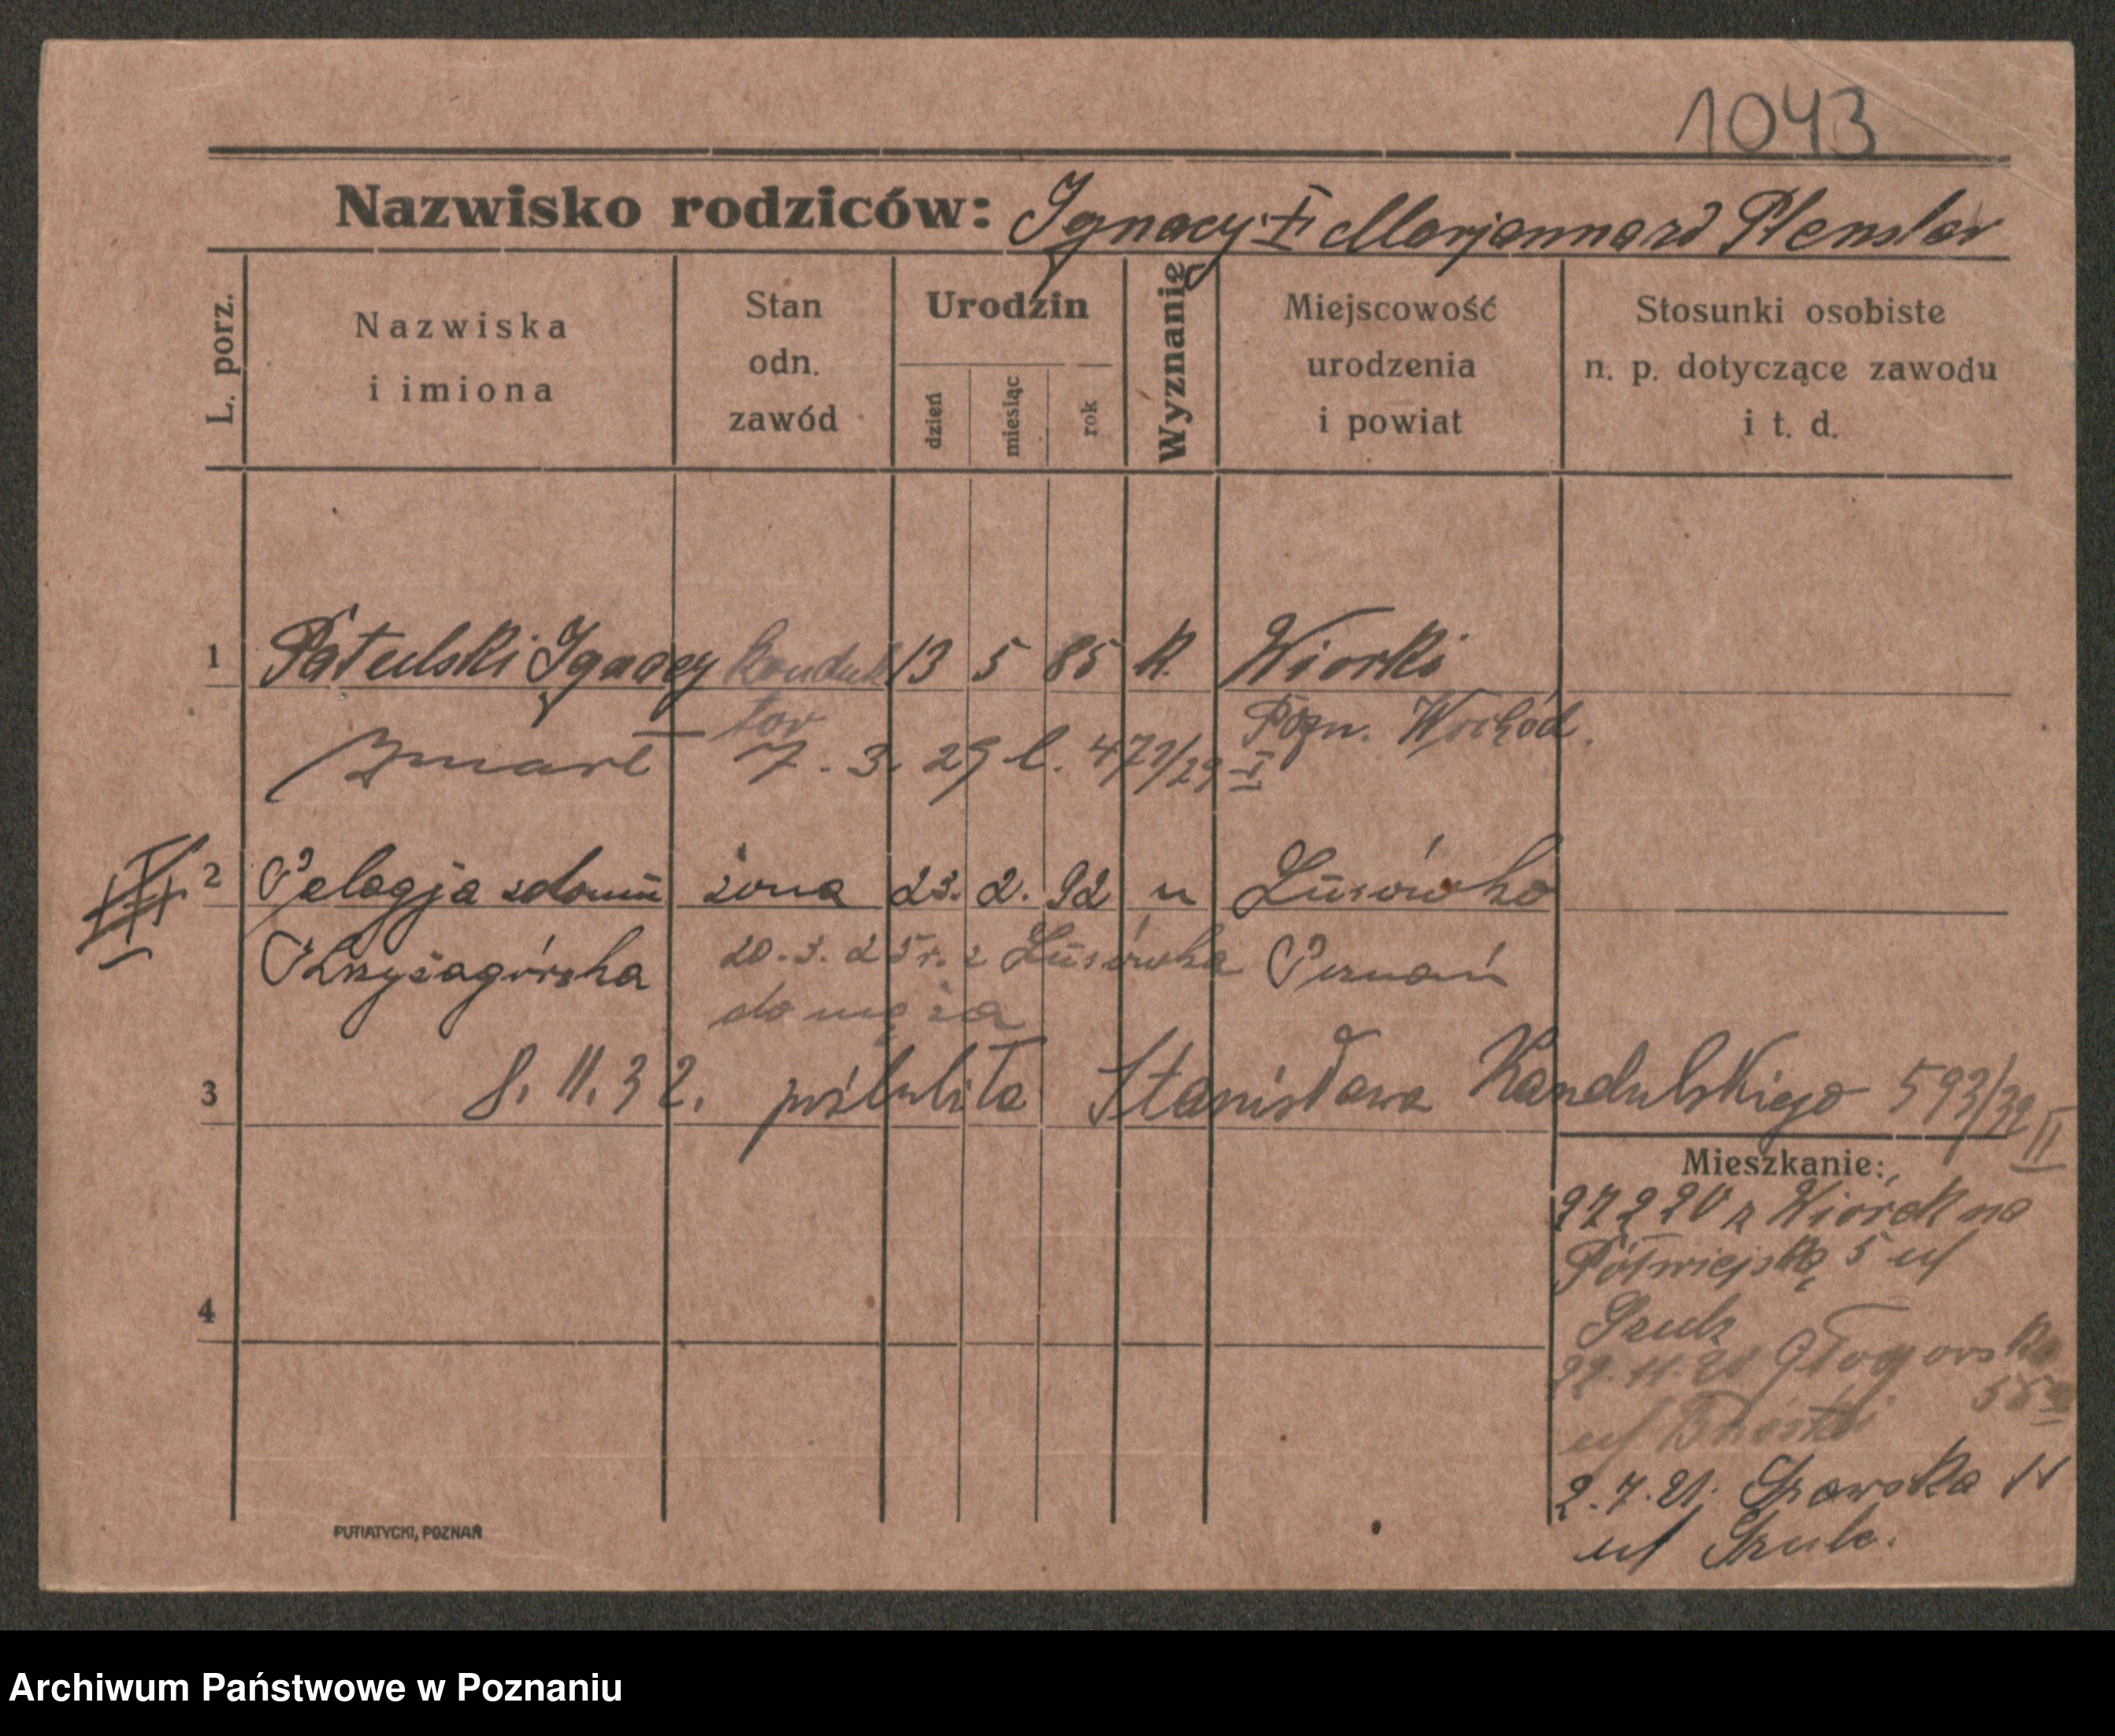 1043
Nazwisko rodziców: Ignacy i Marjanna zd
L. porz.
Nazwiska i imiona
Stan odn. zawód
Urodzin
dzień
miesiąc
rok
Wyznanie
Miejscowość urodzenia i powiat
Stosunki osobiste n. p. dotyczące zawodu i t. d.
1 Patulski Ignacy konduk 13 5 85 k. Wiorki
tor Pozn. Wschód.
Zmarł 7. 3. 29 l. 471/29 I
2 Pelagja zdomu żona 23. 2. 92 Lusówko
Krzyżagórska 20. 3. 25 r. z Lusówka Poznań
do męża
3 8. 11. 32. poślubiła Stanisława Kandulskiego 593/32 II
Mieszkanie:
27 2 20 z Wiórek na
Półwiejską 5 u/
Szulz
22. 11. 21 Głogowska
u/
2. 7. 21. 11
u/ Szulc.
4
PUTIATYCKI, POZNAŃ
Archiwum Państwowe w Poznaniu